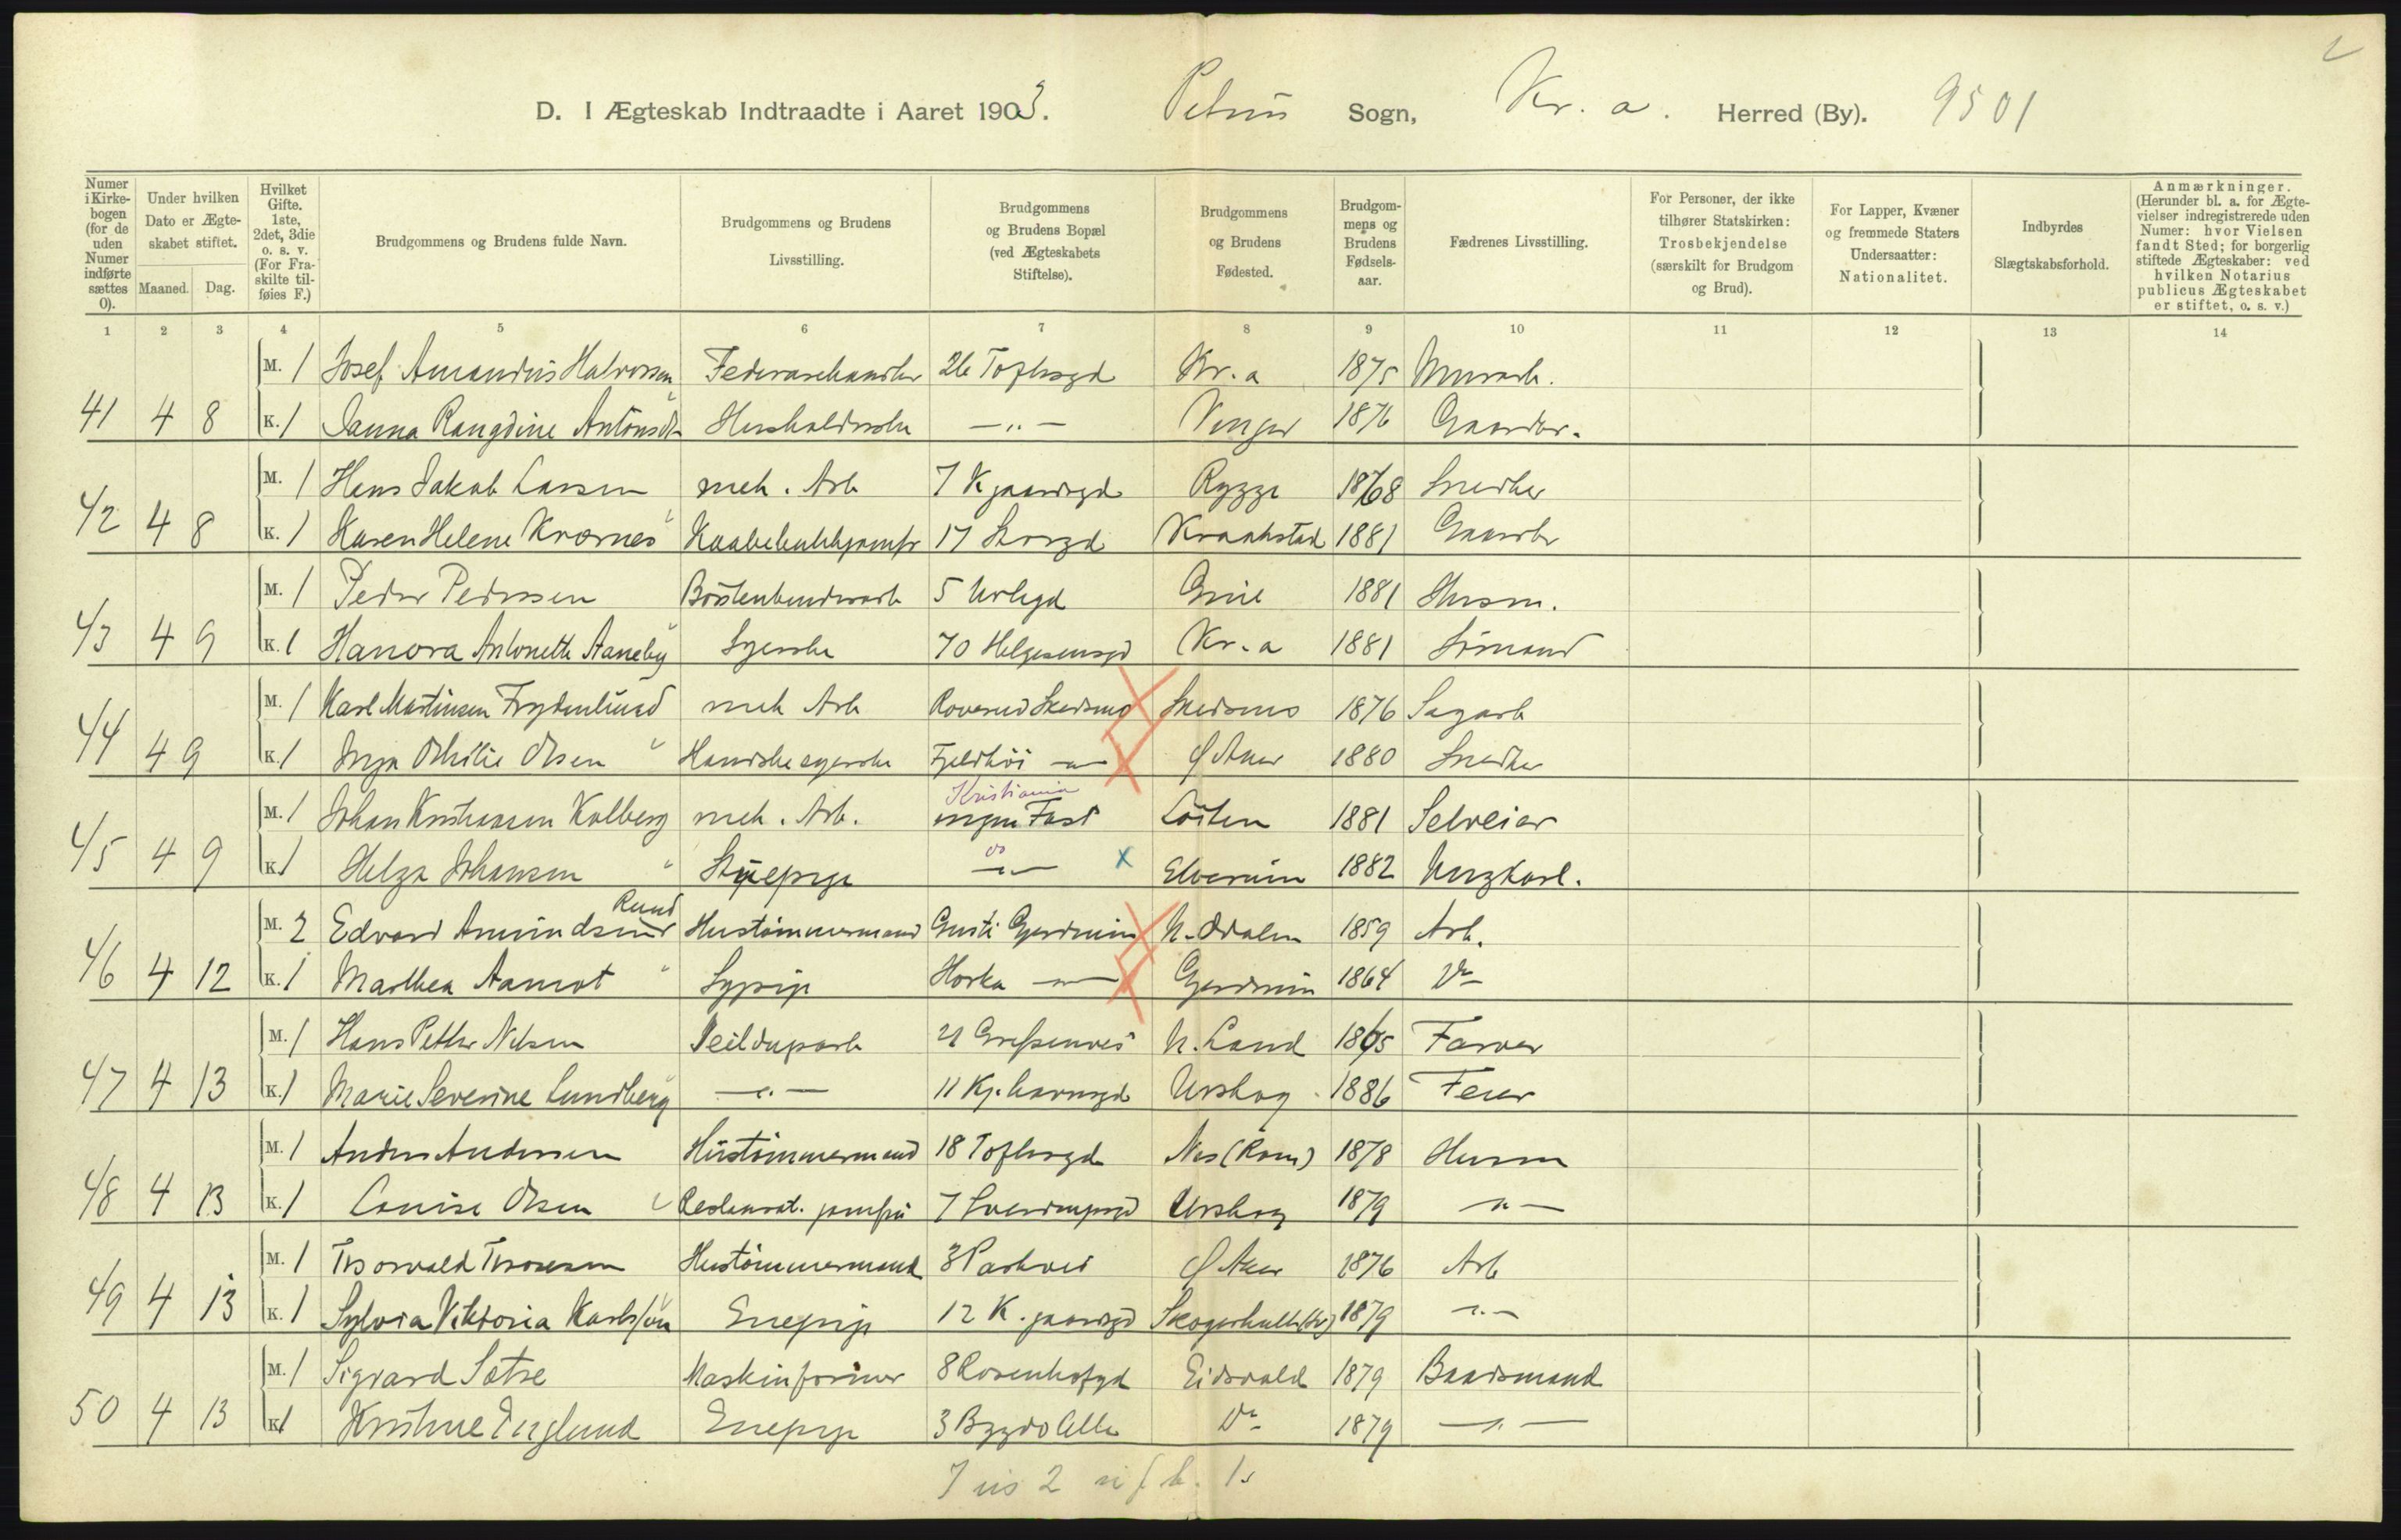 D. I Ægteskab Indtraadte i Aaret 1903. Petrus Sogn, Kr. a. Herred (By). 9501
Numer i Kirkebogen (for de uden Numer indførte sættes 0).
Under hvilken Dato er Ægteskabet stiftet.
Maaned. Dag.
Hvilket Gifte. 1ste, 2det, 3die o. s. v. (For Fraskilte tilføies F.)
Brudgommens og Brudens fulde Navn.
Brudgommens og Brudens Livsstilling.
Brudgommens og Brudens Bopæl (ved Ægteskabets Stiftelse).
Brudgommens og Brudens Fødested.
Brudgommens og Brudens Fødselsaar.
Fædrenes Livsstilling.
For Personer, der ikke tilhører Statskirken: Trosbekjendelse (særskilt for Brudgom og Brud).
For Lapper, Kvæner og fremmede Staters Undersaatter: Nationalitet.
Indbyrdes Slægtskabsforhold.
Anmærkninger. (Herunder bl. a. for Ægtevielser indregistrerede uden Numer: hvor Vielsen fandt Sted; for borgerlig stiftede Ægteskaber: ved hvilken Notarius publicus Ægteskabet er stiftet, o. s. v.)
1 2 3 4 5 6 7 8 9 10 11 12 13 14
M. 1 Josef Amandus Halvorsen 26 Toftesgd Kr. a 1875 Murarb.
41 4 8 K. 1 Janna Ragndine Antonsdtr Husholderske —"— 1876 Gaardbr.
M. 1 Hans Jakob Larsen mek. Arb 7 Kjaardsgd Rygge 1868 Snedker
42 4 8 K. 1 Karen Helene Kroksnes 17 Storgd Kraakstad 1881 Gaardbr
M. 1 Peder Pedersen Börstenbinderarb 5 Urtegd Grue 1881 Husm.
43 4 9 K. 1 Hanora Antonette Aaneby Syerske 70 Helgesensgd Kr. a 1881 Sömand
M. 1 Karl Martinsen Frydenlund mek Arb Roverud Skedsmo Skedsmo 1876 Sagarb
44 4 9 K. 1 Inga Othilie Olsen Handskesyerske Fjeldhöi —"— Ø Aker 1880 Snedker
Kristiania
M. 1 Johan Kristiansen Kolberg mek. Arb. ingen Fast Löiten 1881 Selveier
45 4 9 K. 1 Helga Johansen Stuepige do —"— x Elverum 1882 Murkarl.
Ruud
M. 2 Edvard Amundsen Hustömmermand Gjerdrum N. Odalen 1859 Arb.
46 4 12 K. 1 Marthea Aamot Sypige —"— Gjerdrum 1864 Do
M. 1 Hans Petter Nilsen Seildugsarb 21 Grefsenvei N. Land 1865 Farver
47 4 13 K. 1 Marie Severine Lundberg —"— 11 Urskog 1886 Feier
M. 1 Anders Andersen Hustömmermand 18 Toftesgd Nes (Rom) 1878 Husm
48 4 13 K. 1 Louise Olsen Restaurat. jomfru 7 Sverdrupsgd Urskog 1879 —"—
M. 1 Thorvald Thoresen Hustömmermand 3 Parkvei Ø Aker 1876 Arb
49 4 13 K. 1 Sylvia Viktoria Karlsson Enepige 12 K. jaardsgd 1879 —"—
M. 1 Sigvard Sætre Maskinformer 8 Rosenhofgd Eidsvold 1879 Baadsmand
50 4 13 K. 1 Kristine Englund Enepige 3 Bygdö Alle Do 1879 —"—